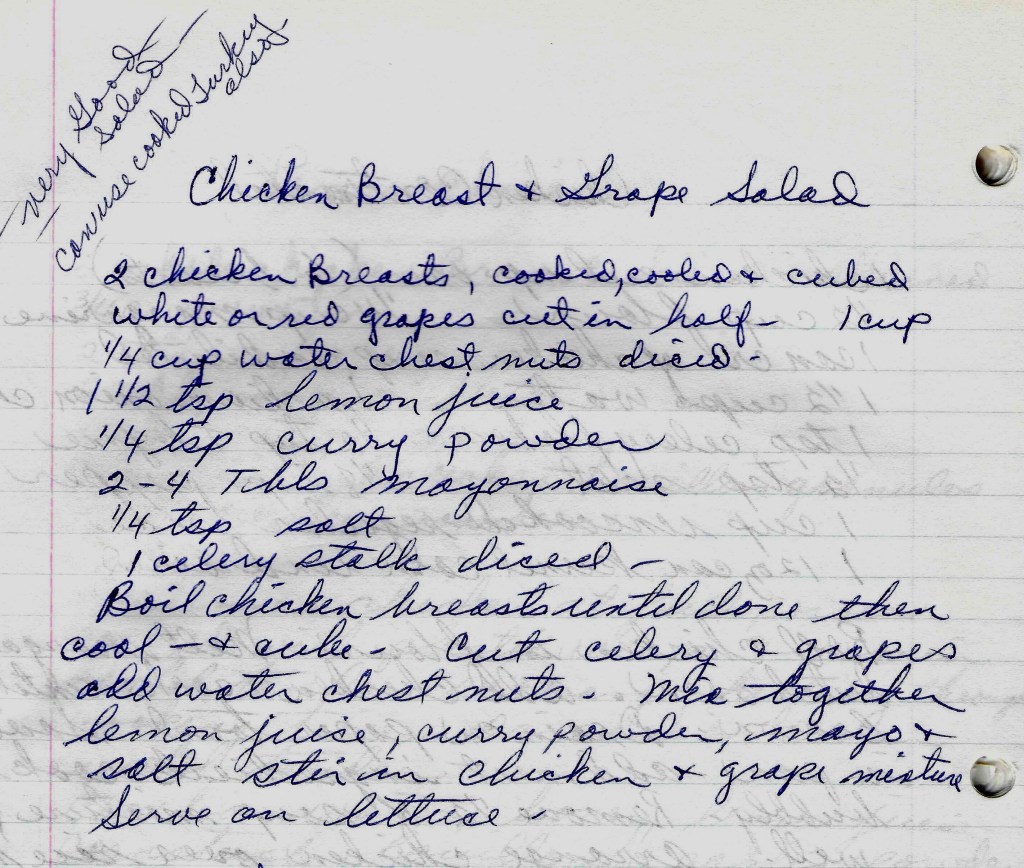 Very Good
Salad
Can use cooked Turkey
also
Chicken Breast + Grape Salad
2 chicken Breasts, cooked, cooled + cubed
white or red grapes cut in half - 1 cup
1/4 cup water chest nuts diced -
1 1/2 tsp lemon juice
1/4 tsp curry powder
2-4 Tbls mayonnaise
1/4 tsp salt
1 celery stalk diced -
Boil chicken breasts until done then
cool - + cube - Cut celery & grapes
add water chest nuts - Mix together
lemon juice, curry powder, mayo +
salt stir in chicken + grape mixture
Serve on lettuce -